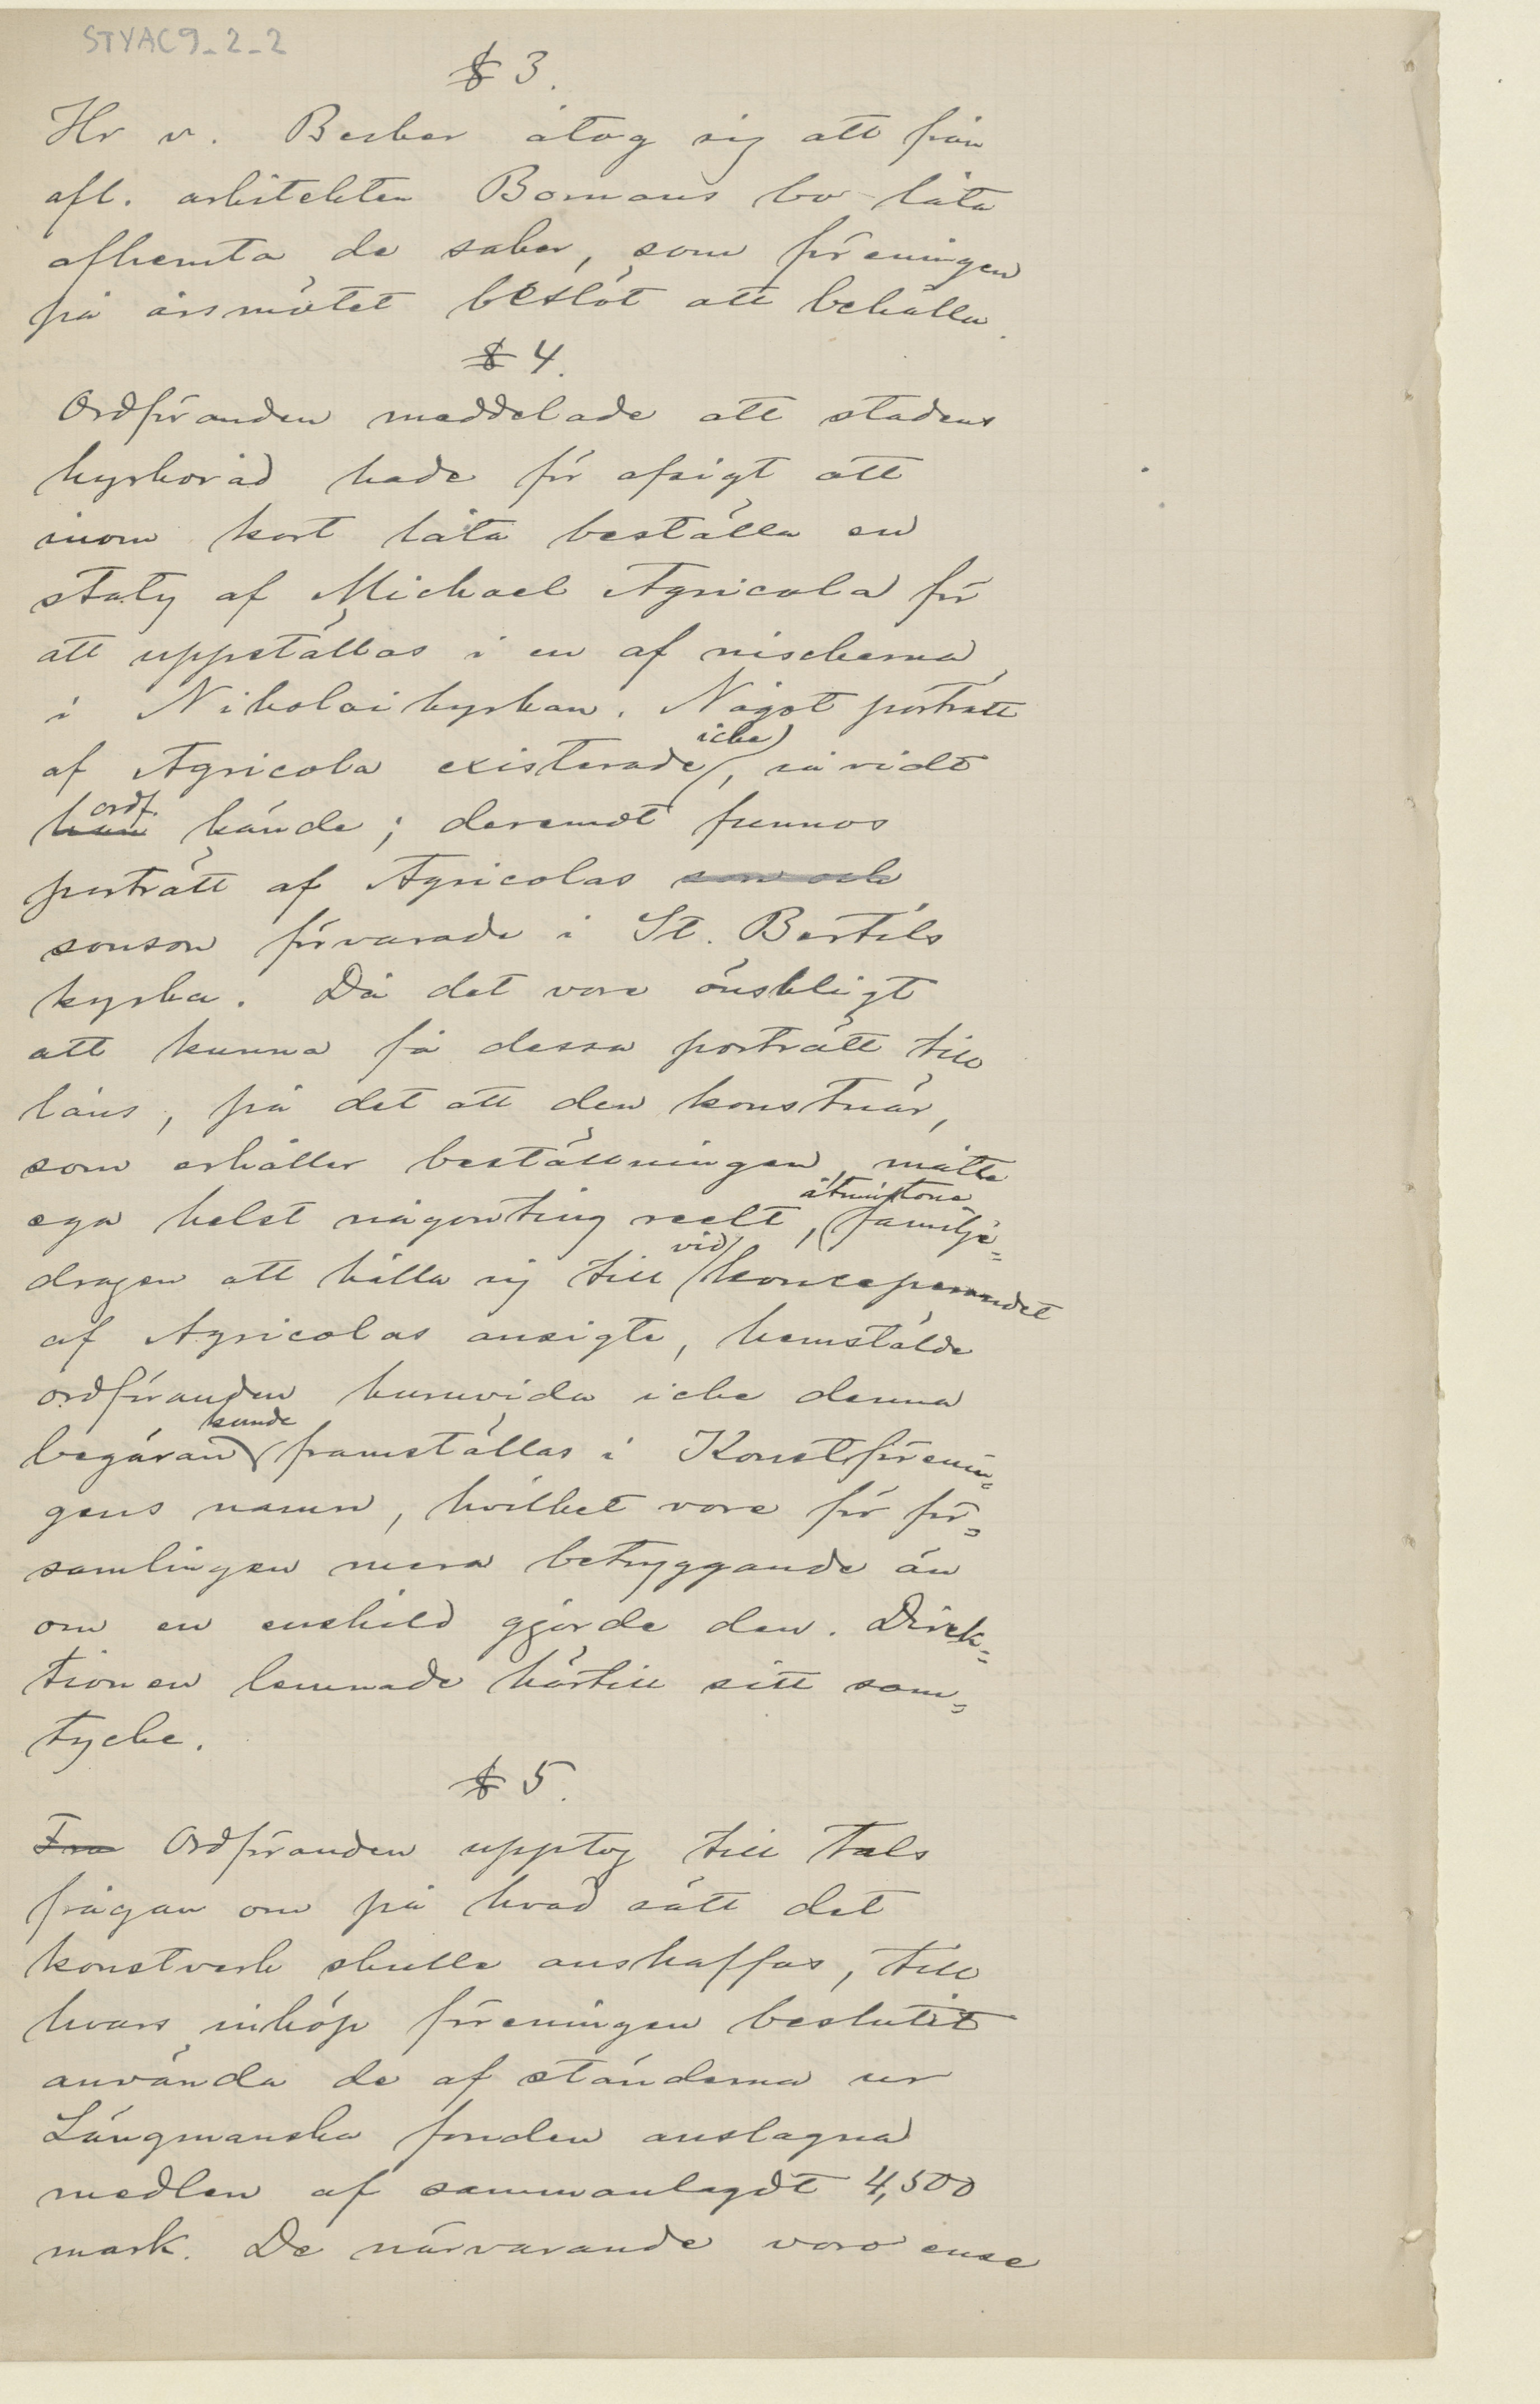 STYAC9_2_2
§ 3.
Hr v. Becker åtog sig att från
afl. arkitekten Bomans bo låta
afhemta de saker, som föreningen
på årsmötet beslöt att behålla.
§ 4.
Ordföranden meddelade att stadens
kyrkoråd hade för afsigt att
inom kort låta beställa en
staty af Michael Agricola för
att uppställas i en af nischerna
i Nikolaikyrkan. Något porträtt
af Agricola existerade icke, så vidt
han ordf. kände; deremot funnos
porträtt af Agricolas son och
sonson förvarade i St. Bertils
kyrka. Då det vore önskligt
att kunna få dessa porträtt till
låns, på det att den konstnär,
som erhåller beställningen, måtte
ega helst någonting reelt, åtminstone familje-
dragen att hålla sig till vid konciperandet
af Agricolas ansigte, hemstälde
ordföranden huruvida icke denna
begäran kunde framställas i Konstförenin-
gens namn, hvilket vore för för-
samlingen mera betryggande än
om en enskild gjorde den. Direk-
tionen lemnade härtill sitt sam-
tycke.
§ 5.
Fra Ordföranden upptog till tals
frågan om på hvad sätt det
konstverk skulle anskaffas, till
hvars inköp föreningen beslutit
använda de af ständerna ur
Längmanska fonden anslagna
medlen af sammanlagdt 4,500
mark. De närvarande voro ense